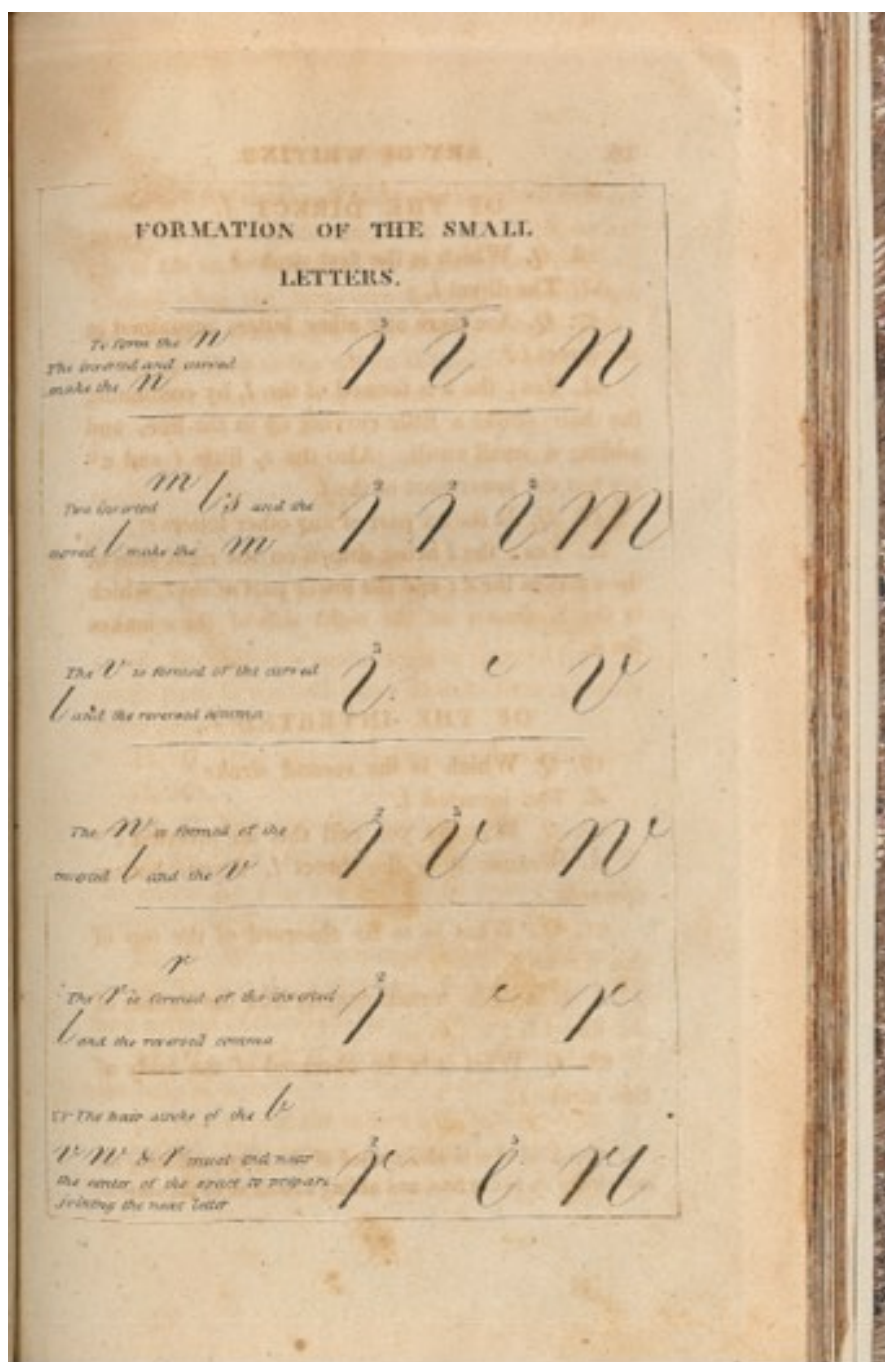 FORMATION OF THE SMALL
LETTERS.
To form the n
The inverted and curved
make the n
3 3
l l n
m
Two inverted l's and the
curved l make the m
2 2 3
l l l m
The v is formed of the curved
l and the reversed comma
3
l c v
The w is formed of the
inverted l and the v
2 3
l v w
r
The r is formed of the inverted
l and the reversed comma
2
l c r
The hair stroke of the b
v w & r must end near
the center of the space to prepare
joining the next letter
2 3
r